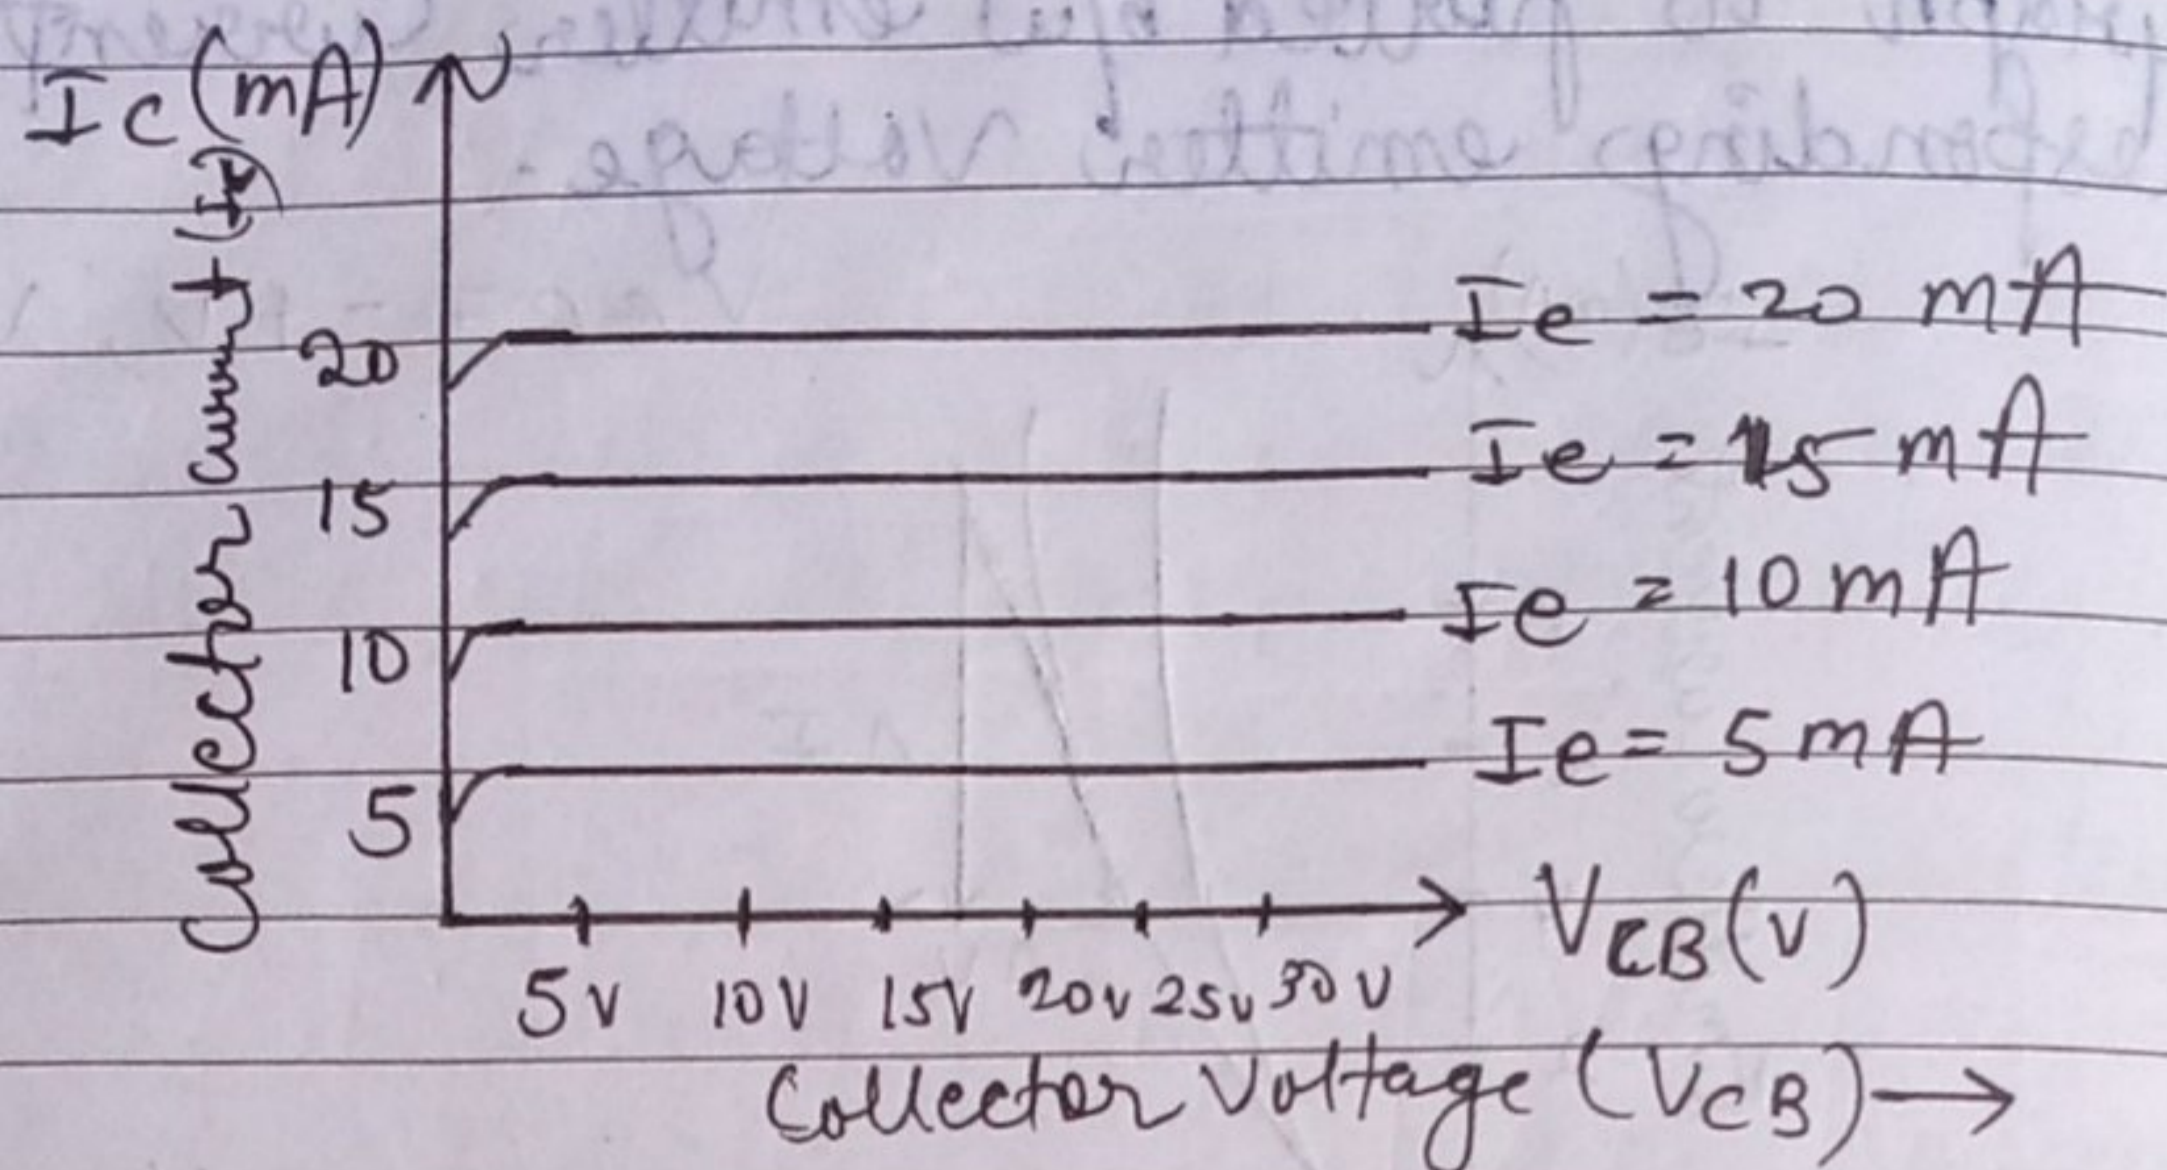 Ic (mA)
Collector current (Ic)
20
15
10
5
Ie = 20 mA
Ie = 15 mA
Ie = 10 mA
Ie = 5 mA
5v 10V 15V 20v 25v 30V
VCB (v)
Collector Voltage (VCB) →